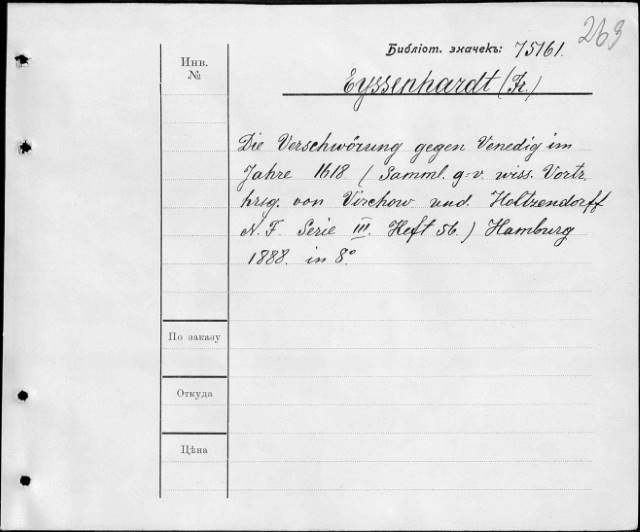 263
Библіот. значекъ: 75161.
Инв.
№
Eyssenhardt (Fr.)
Die Verschwörung gegen Venedig im
Jahre 1618 (Samml. g-v. wiss. Vortr.
hrsg. von Virchow und. Holtzendorff
N. F. Serie III. Heft 56.) Hamburg
1888. in 8°
По заказу
Откуда
Цѣна